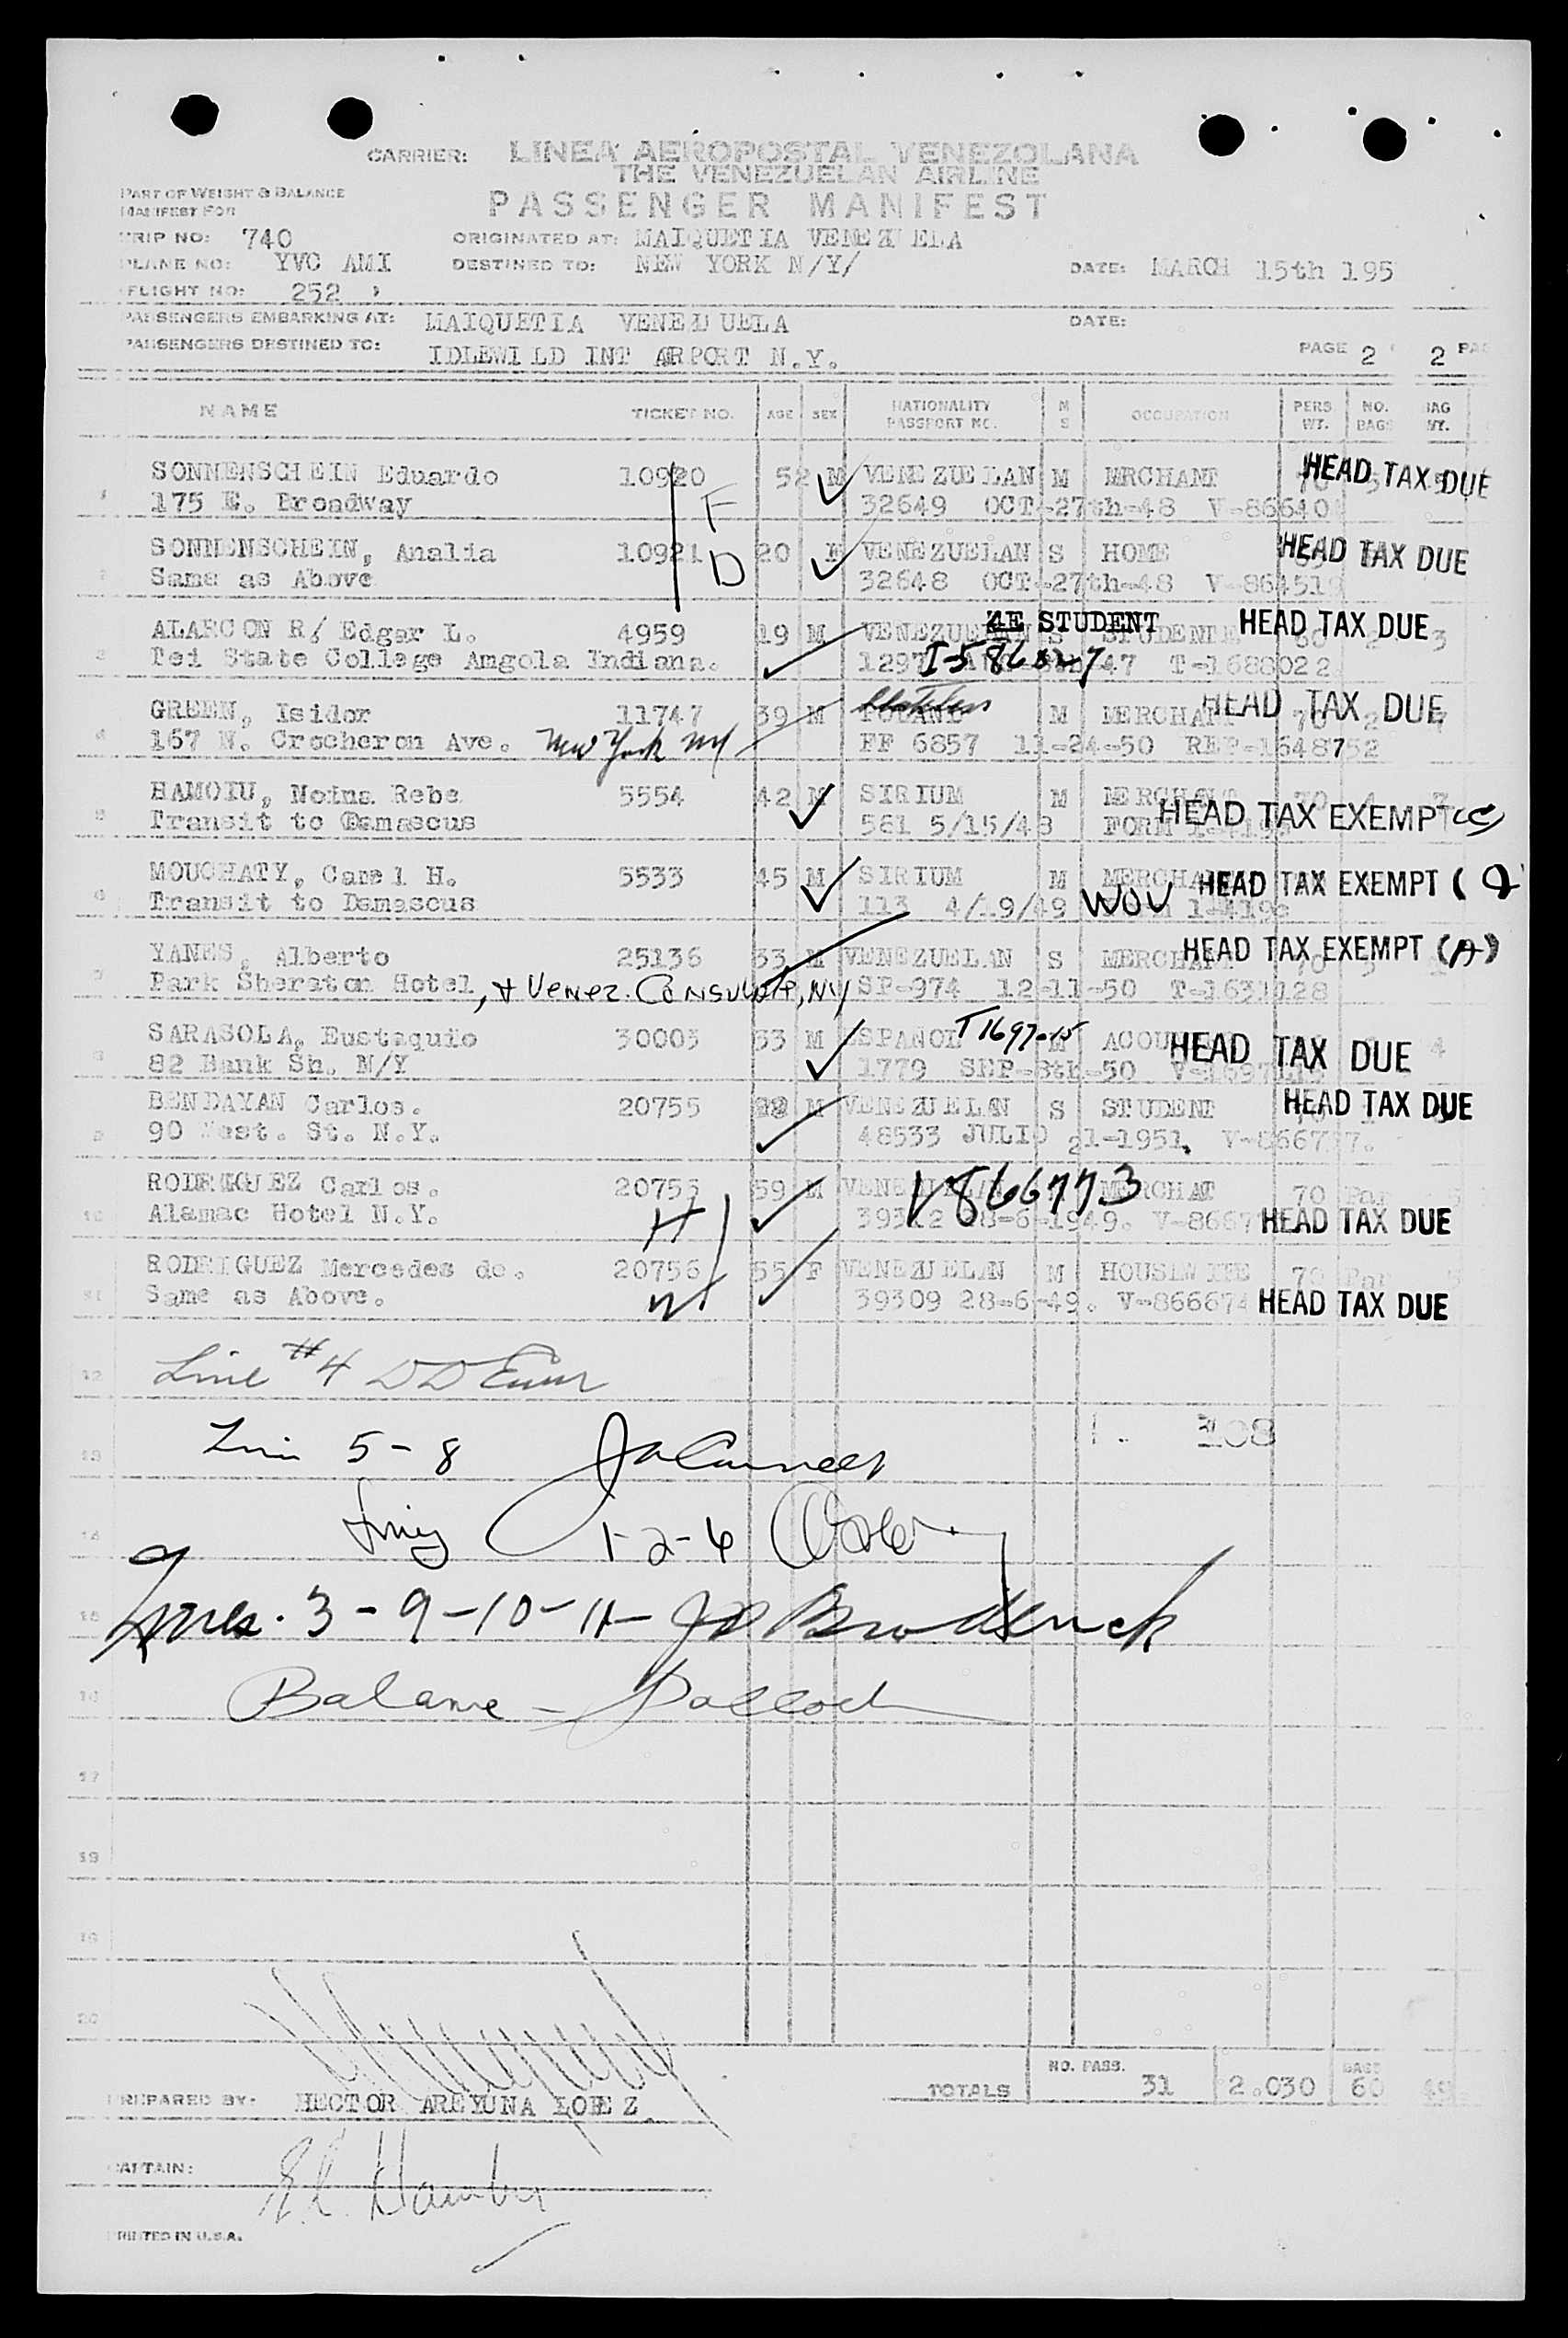 CARRIER: LINEA AEROPOSTAL VENEZOLANA
THE VENEZUELAN AIRLINE
PART OF WEIGHT & BALANCE
MANIFEST FOR
PASSENGER MANIFEST
TRIP NO: 740 ORIGINATED AT: MAIQUETIA VENEZUELA
PLANE NO: YVC AMI DESTINED TO: NEW YORK N/Y/ DATE: MARCH 15th 195
FLIGHT NO: 252
PASSENGERS EMBARKING AT: MAIQUETIA VENEZUELA DATE:
PASSENGERS DESTINED TO: IDLEWILD INT ARPORT N.Y. PAGE 2 2 PAG
NAME TICKET NO. AGE SEX NATIONALITY PASSPORT NO. M S OCCUPATION PERS WT. NO. BAGS BAG WT.
1 SONNENSCHEIN Eduardo 10920 52 M VENEZUELAN M MRCHANT HEAD TAX DUE
175 E. Broadway F 32649 OCT-27th-48 V-86640
2 SONNENSCHEIN, Analia 10921 20 VENEZUELAN S HOME HEAD TAX DUE
Same as Above D 32648 OCT-27th-48 V-864519
3 ALARCON R/ Edgar L. 4959 19 M VENEZUELAN 4E STUDENT S STUDENTE HEAD TAX DUE 3
Tri State College Amgola Indiana. 1297 I-586027 47 T-1688022
4 GREEN, Isidor 11747 39 M POLAND Stateless M MERCHANT HEAD TAX DUE
167 N. Crocheron Ave. New York NY FF 6857 11-24-50 REP-1648752
5 HAMOIU, Rebe 5554 42 M SIRIUM M MERCHANT HEAD TAX EXEMPT (C)
Transit to Damascus 581 5/15/48 FORM
6 MOUCHATY, Camel H. 5533 45 M SIRIUM M MERCHANT HEAD TAX EXEMPT (
Transit to Damascus 113 4/19/49 WOV
7 YANES, Alberto 25136 33 M VENEZUELAN S MERCHANT HEAD TAX EXEMPT (A)
Park Sheraton Hotel, + Venez. Consulate, NY SP-974 12-11-50 T-1631128
8 SARASOLA, Eustaquio 30003 33 M SPANOL ACOUN HEAD TAX DUE 4
82 Bank Sh. N/Y 1779 SEP-8th-50
9 BENDAYAN Carlos. 20755 M VENEZUELAN S STUDENT HEAD TAX DUE
90 West. St. N.Y. 48533 JULIO 21-1951.
10 RODRIGUEZ Carlos. 20755 59 M V866773 MERCHAT 70 Par
Alamac Hotel N.Y. H 39312 28-6-1949. HEAD TAX DUE
11 RODRIGUEZ Mercedes de. 20756 55 F VENEZUELAN M HOUSEWIFE 70 Par
Same as Above. W 39309 28-6-49. V-866674 HEAD TAX DUE
12 Line #4
13 5-8 108
14 1-2-6
15 Lines. 3-9-10-11- JD Broderick
16 Balance -
17
18
19
20
NO. PASS.
TOTALS 31 2.030 60 49
PREPARED BY: HECTOR AREYUNA LOPEZ
CAPTAIN:
PRINTED IN U.S.A.